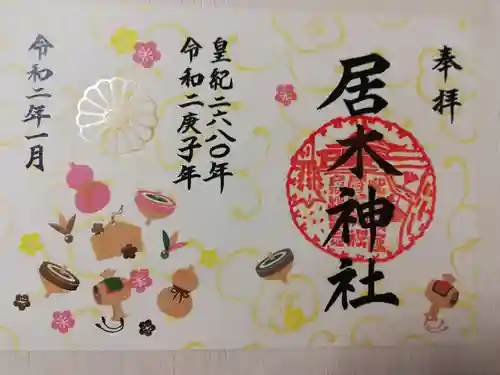 奉拝
居木神社
皇紀二六八〇年
令和二庚子年
令和二年一月